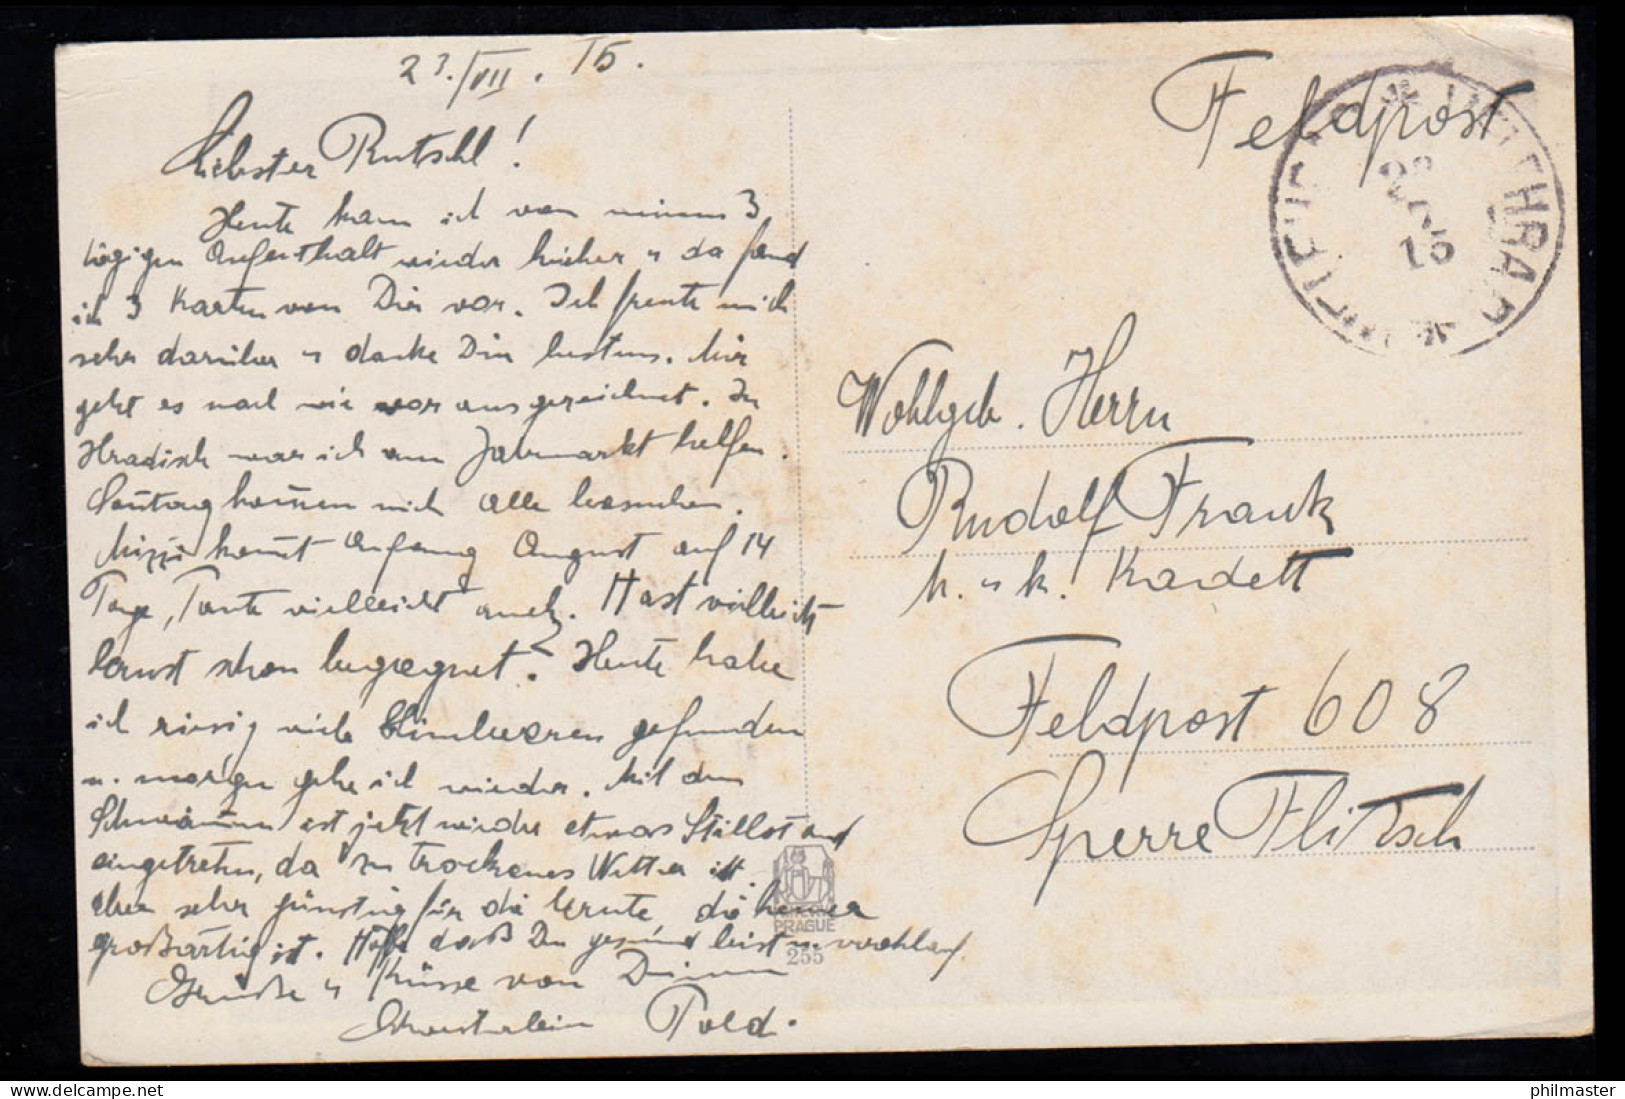 23./VII. 15.
Liebster Rutschl!
Heute kam ich von meinem 3
tägigen Aufenthalt wieder hieher u da fand
ich 3 Karten von Dir vor. Ich freute mich
sehr darüber u danke Dir bestens. Mir
geht es nach wie vor ausgezeichnet. In
Hradisch war ich am Jahrmarkt helfen.
Sonntag kom̄en mich alle besuchen.
Mizzi kom̄t Anfang August auf 14
Tage, Tante vielleicht auch. Hast vielleicht
Ernst schon begegnet? Heute habe
ich riesig viele Himbeeren gefunden
u. morgen gehe ich wieder. Mit den
Schwäm̄en ist jetzt wieder etwas Stillstand
eingetreten, da zu trockenes Wetter ist
aber sehr günstig für die Ernte, die heuer
großartig ist. Hoffe daß Du gesund bist u wohlauf.
Grüße u Küsse von Deinem
Pold.
Feldpost
Wohlgeb. Herrn
Rudolf Frank
k. u k. Kadett
Feldpost 608
Sperre Flitsch
HRAD
15
PRAGUE
255
philmaster